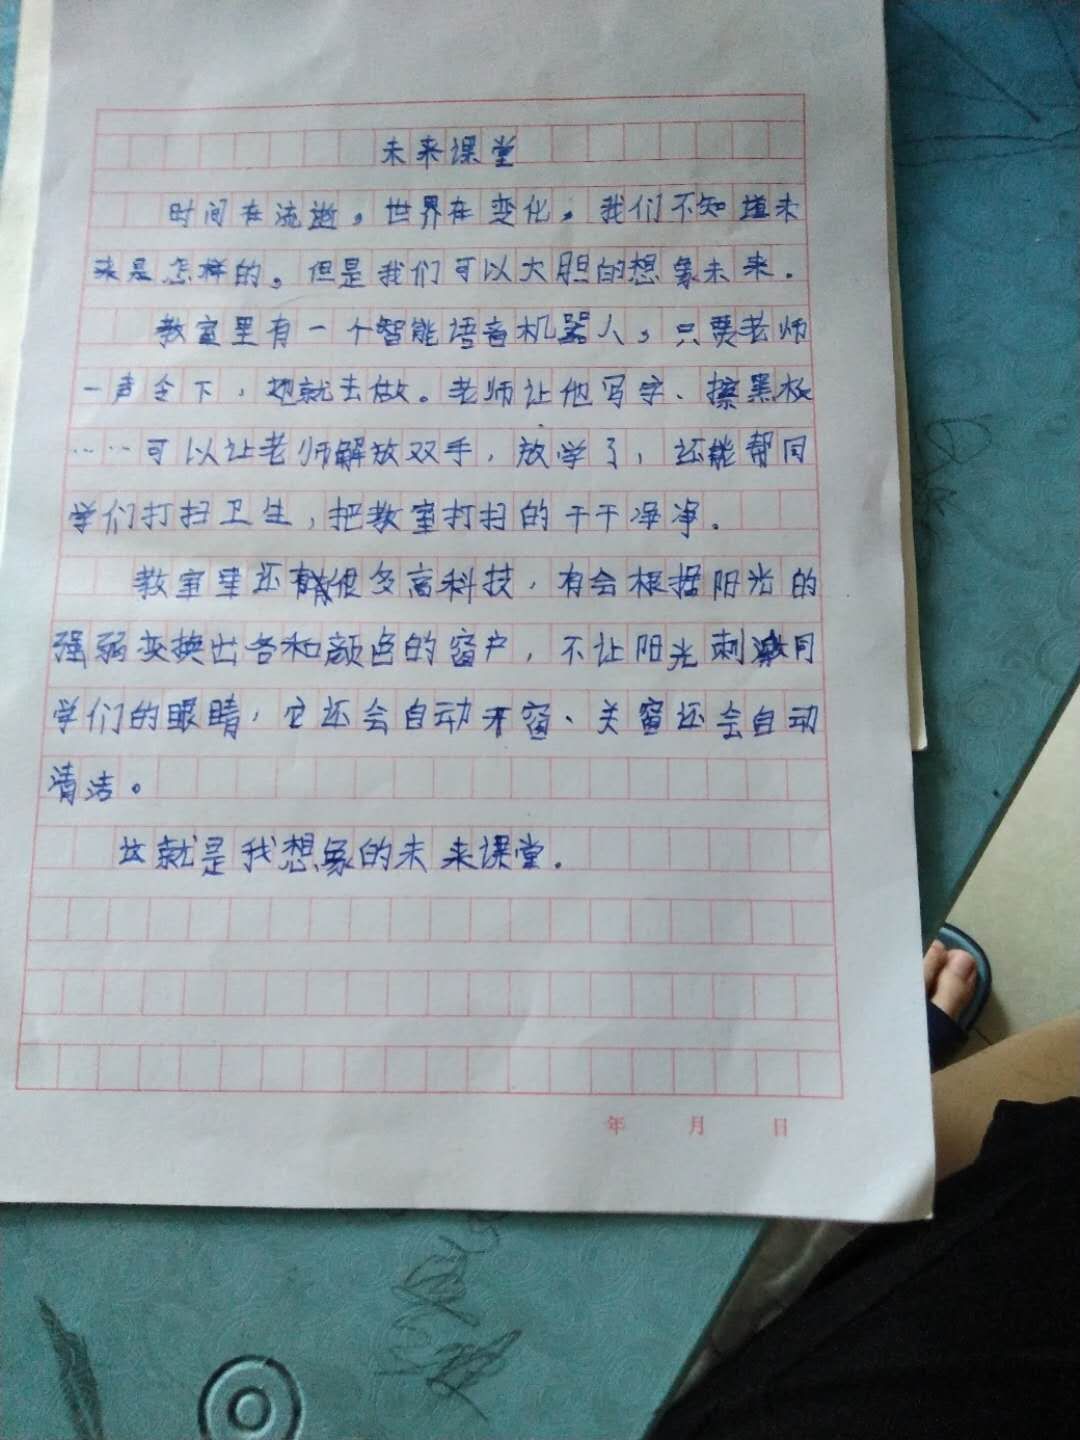 未来课堂
时间在流逝，世界在变化，我们不知道未
来是怎样的。但是我们可以大胆的想象未来.
教室里有一个智能语音机器人，只要老师
一声令下，他就去做。老师让他写字、擦黑板
……可以让老师解放双手，放学了，还能帮同
学们打扫卫生，把教室打扫的干干净净.
教室里还有很多高科技，有会根据阳光的
强弱变换出各种颜色的窗户，不让阳光刺激同
学们的眼睛，它还会自动开窗、关窗还会自动
清洁。
这就是我想象的未来课堂.
年 月 日